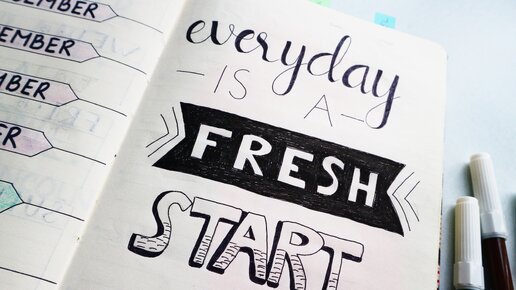 CEMBER
EMBER
MBER
BER
everyday
IS A
FRESH
START